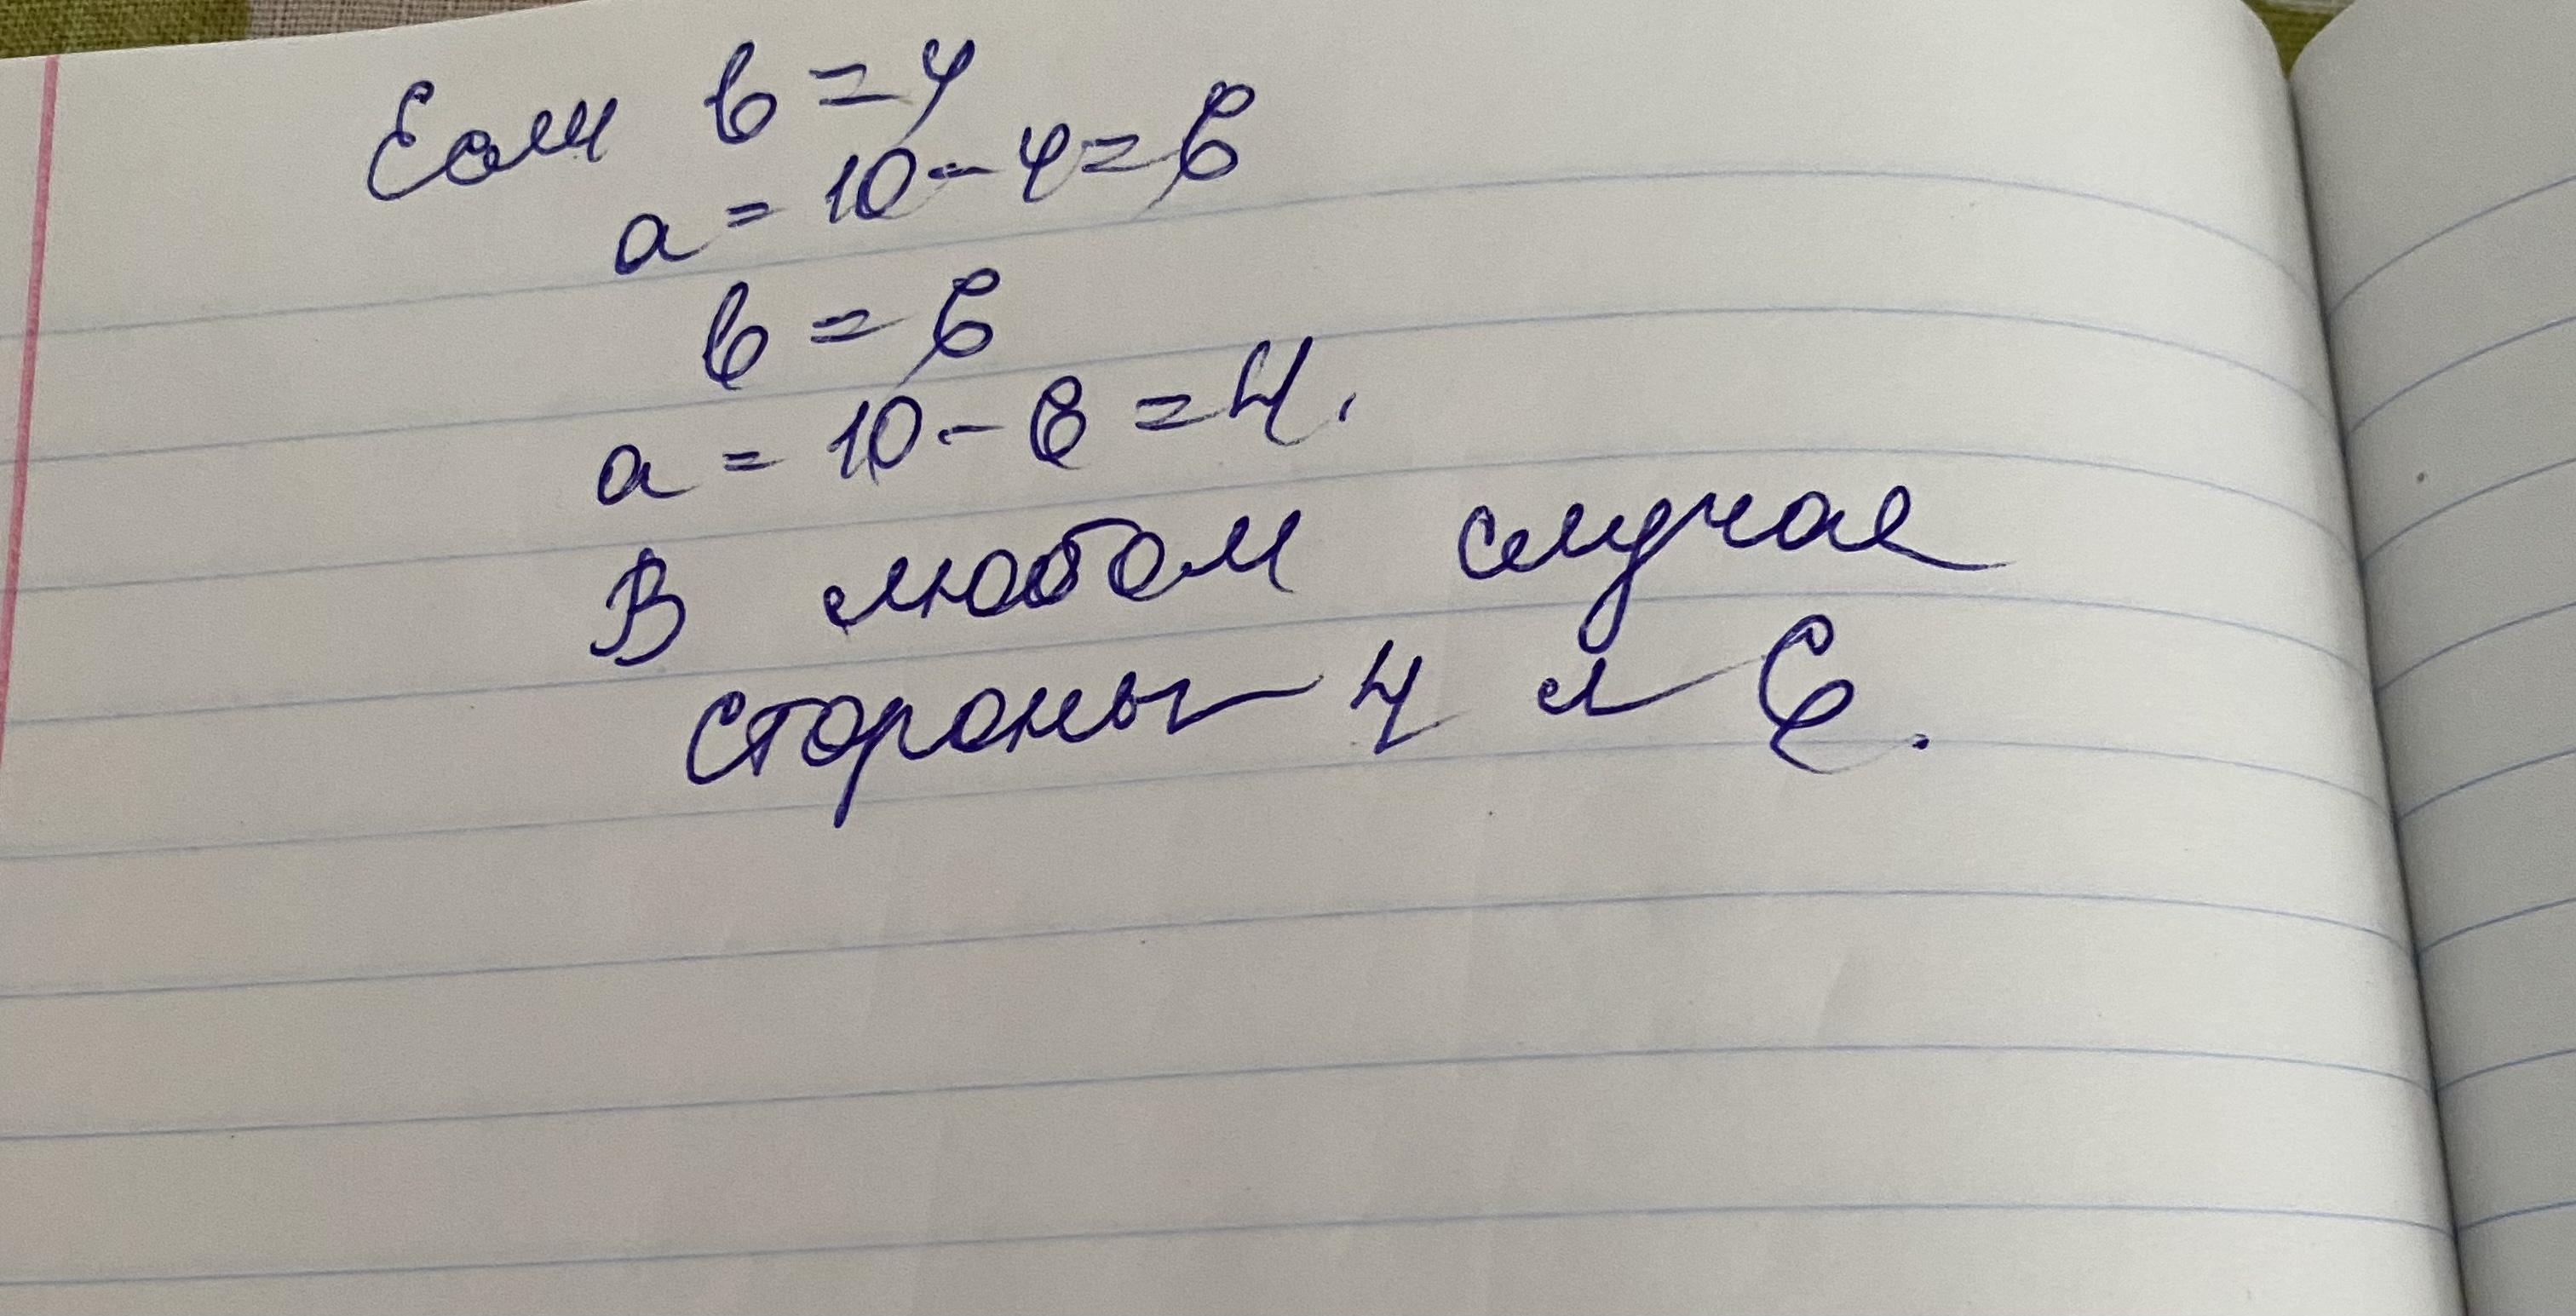 Если в = 4
а = 10 - 4 = 6
в = 6
а = 10 - 6 = 4.
В любом случае
стороны 4 и 6.